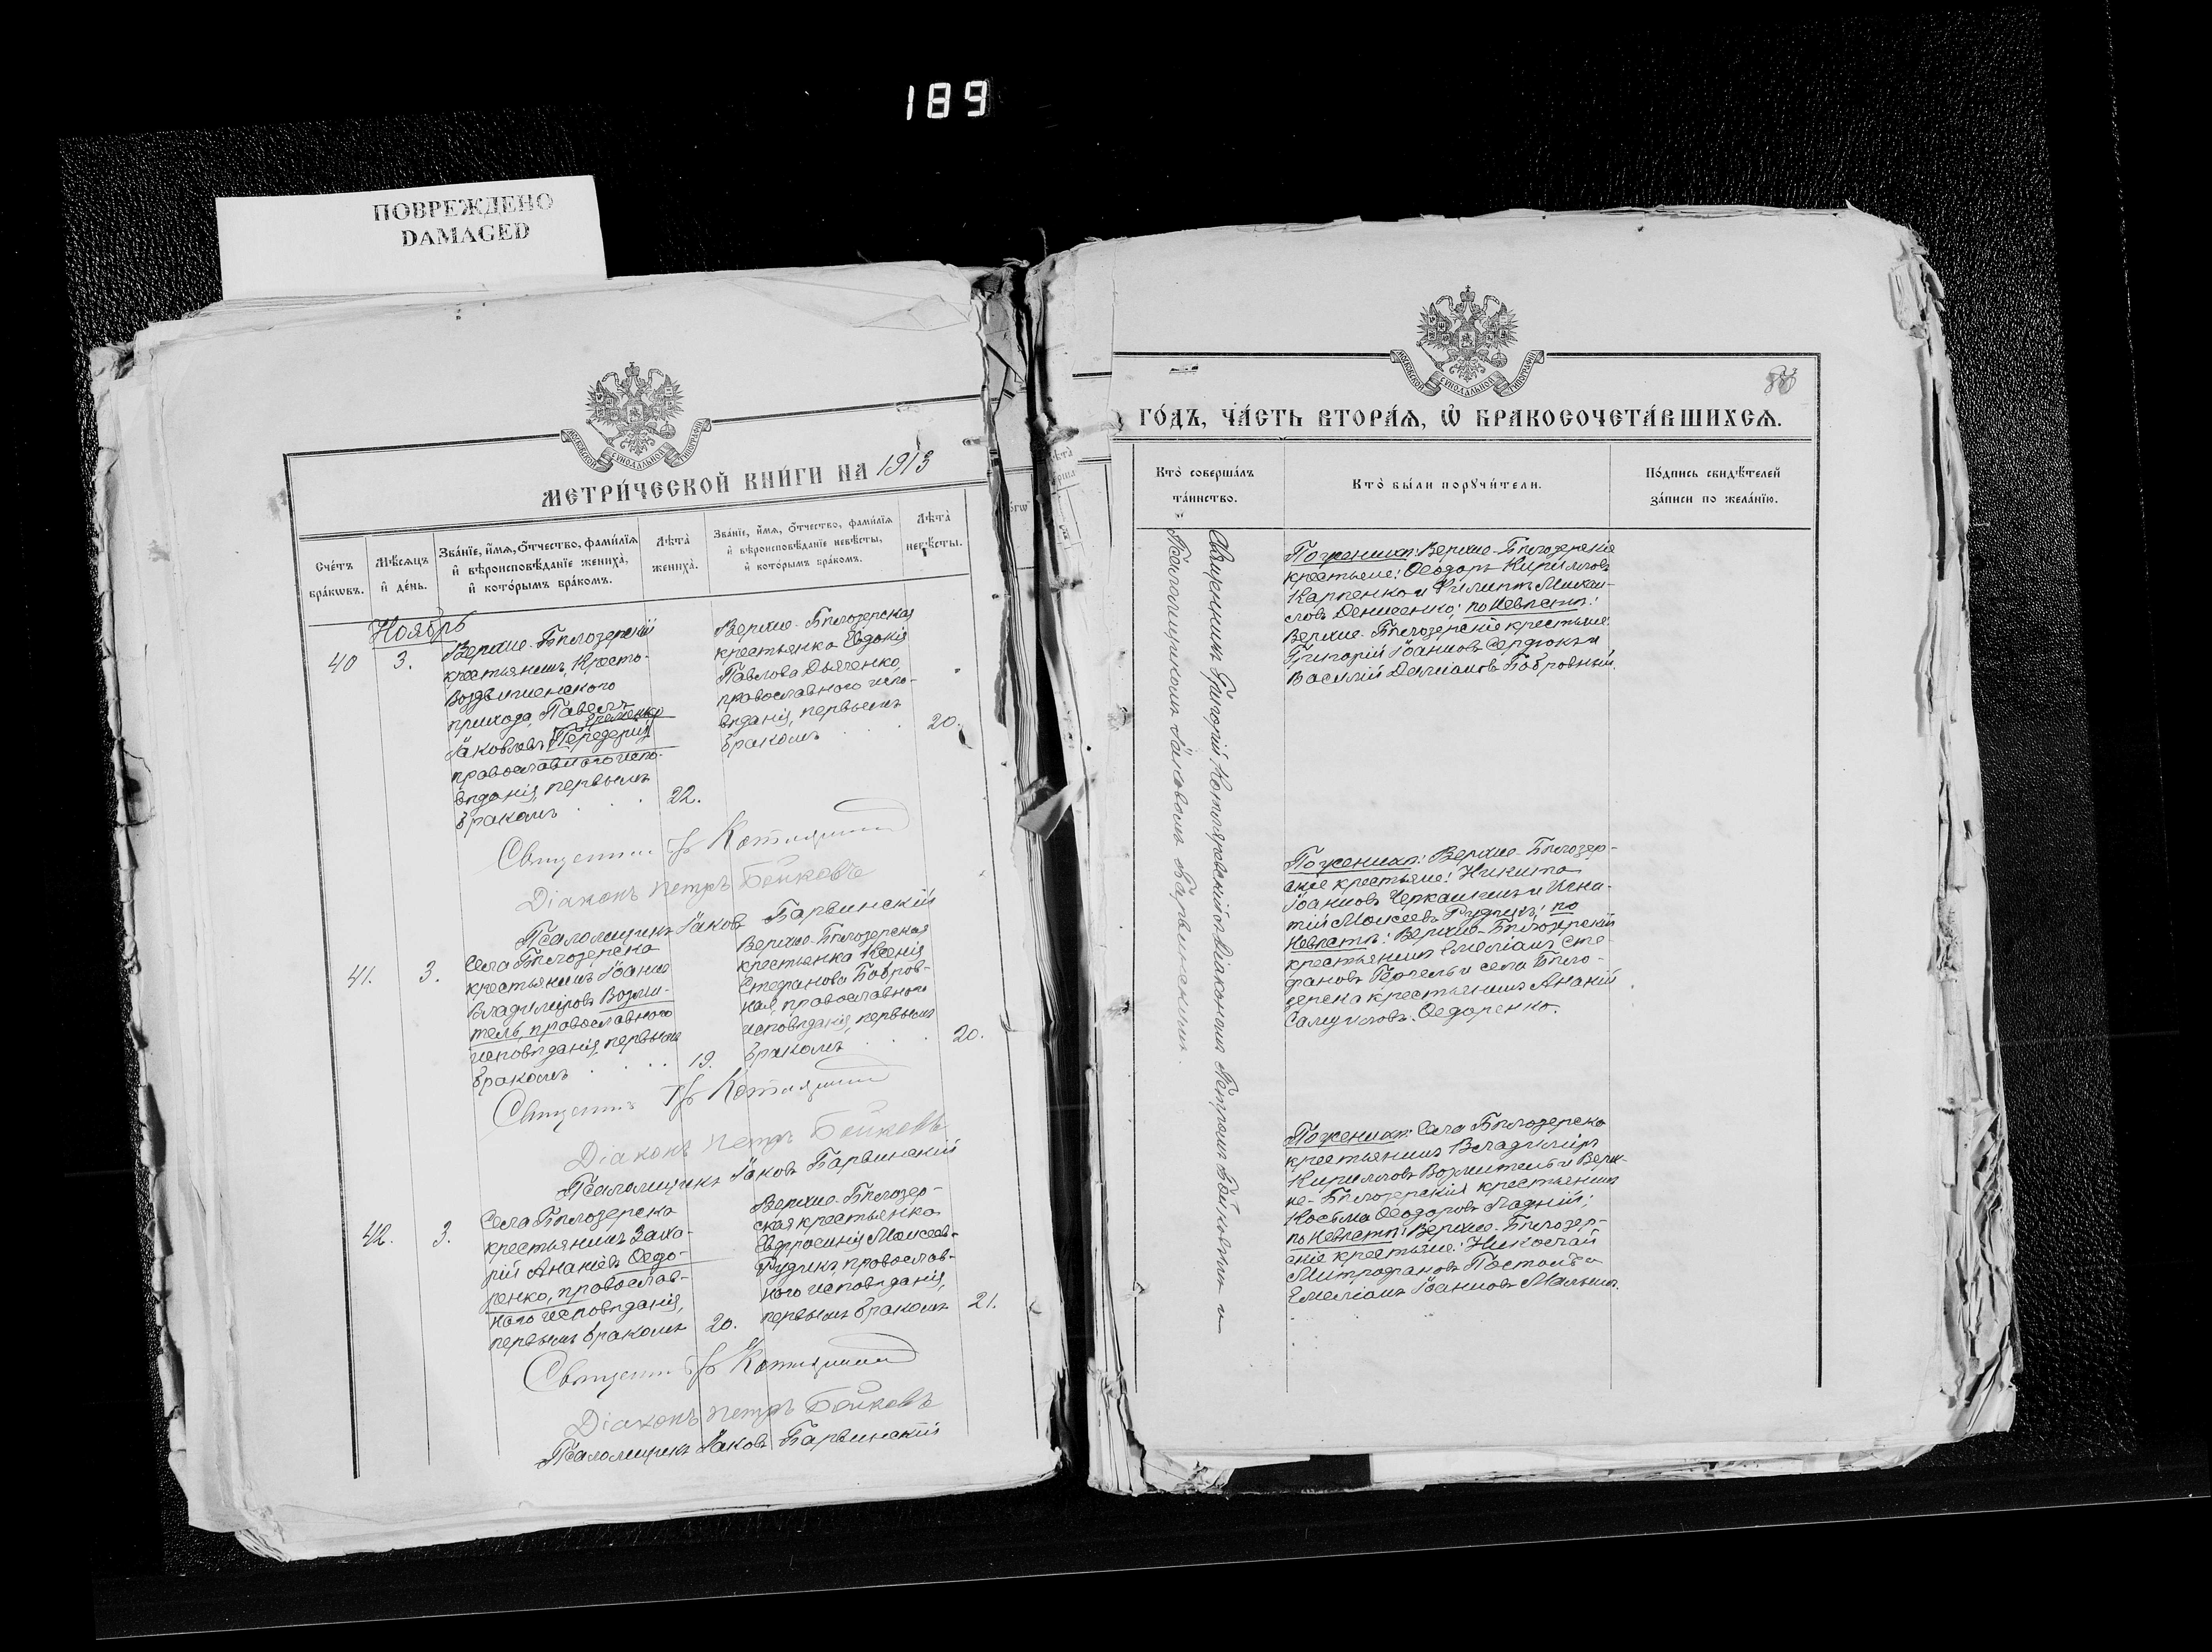 189
ПОВРЕЖДЕНО
DAMAGED
МОСКОВСКОЙ СѴНОДАЛЬНОЙ ТИПОГРАФІИ
МЕТРИ́ЧЕСКОЙ КНИ́ГИ НА 1913
Сче́тъ бра́кѡвъ.
Мѣ́сяцъ и҆ де́нь.
Зва́нїе, и҆́мѧ, ѻ҆́тчество, фами́лїѧ
и҆ вѣроисповѣ́данїе жениха̀,
и҆ кото́рымъ бра́комъ.
Лѣ́та̀ жениха̀.
Зва́нїе, и҆́мѧ, ѻ҆́тчество, фами́лїѧ
и҆ вѣроисповѣ́данїе невѣ́сты,
и҆ кото́рымъ бра́комъ.
Лѣ́та̀ невѣ́сты.
Ноябрь
40
3.
Верхне-Бѣлозерскій
крестьянинъ, Кресто-
воздвиженскаго
прихода, Павелъ
Яковлевъ Передерій
Еременко
православнаго испо-
вѣданія, первымъ
бракомъ
22.
Верхне-Бѣлозерская
крестьянка Евдокія
Павлова Дьяченко,
православнаго испо-
вѣданія, первымъ
бракомъ
20.
Діаконъ Петръ Бойковъ
Псаломщикъ Іаковъ Барвинскій
41.
3.
Села Бѣлозерска
крестьянинъ Іоаннъ
Владиміровъ Возми-
тель, православнаго
исповѣданія, первымъ
бракомъ
19.
Верхне-Бѣлозерская
крестьянка Ксенія
Стефанова Бобров-
ная, православнаго
исповѣданія, первымъ
бракомъ
20.
Діаконъ Петръ Бойковъ
Псаломщикъ Іаковъ Барвинскій
42.
3.
Села Бѣлозерска
крестьянинъ Заха-
рій Ананіевъ Ѳедо-
ренко, православ-
наго исповѣданія,
первымъ бракомъ
20.
Верхне-Бѣлозер-
ская крестьянка
Евфросинія Моисеева
Рудикъ, православ-
наго исповѣданія,
первымъ бракомъ
21.
Діаконъ Петръ Бойковъ
Псаломщикъ Іаковъ Барвинскій
МОСКОВСКОЙ СѴНОДАЛЬНОЙ ТИПОГРАФІИ
ГО́ДЪ, ЧА́СТЬ ВТОРА́Ѧ, Ѡ҆ БРАКОСОЧЕТА́ВШИХСѦ.
Кто̀ соверша́лъ
та́инство.
Кто̀ бы́ли порꙋчи́тели.
По́дпись свидѣ́телей
за́писи по жела́нїю.
Священникъ Григорій Котляревскій съ Діакономъ Петромъ Бойковымъ и
Псаломщикомъ Іаковомъ Барвинскимъ.
По женихѣ: Верхне-Бѣлозерскіе
крестьяне: Ѳеодоръ Кирилловъ
Карпенко и Филиппъ Михаи-
ловъ Денисенко; по невѣстѣ:
Верхне-Бѣлозерскіе крестьяне:
Григорій Іоанновъ Сердюкъ и
Василій Даміановъ Бобровный.
По женихѣ: Верхне-Бѣлозер-
скіе крестьяне: Никита
Іоанновъ Черкашинъ и Игна-
тій Моисеевъ Рудикъ; по
невѣстѣ: Верхне-Бѣлозерскій
крестьянинъ Емеліанъ Сте-
фановъ и села Бѣло-
зерска крестьянинъ Ананій
Самуиловъ Ѳедоренко.
По женихѣ: Села Бѣлозерска
крестьянинъ Владиміръ
Кирилловъ Возмитель и Верх-
не-Бѣлозерскій крестьянинъ
Косьма Ѳеодоровъ Ладный;
по невѣстѣ: Верхне-Бѣлозер-
скіе крестьяне: Николай
Митрофановъ и
Емеліанъ Іоанновъ